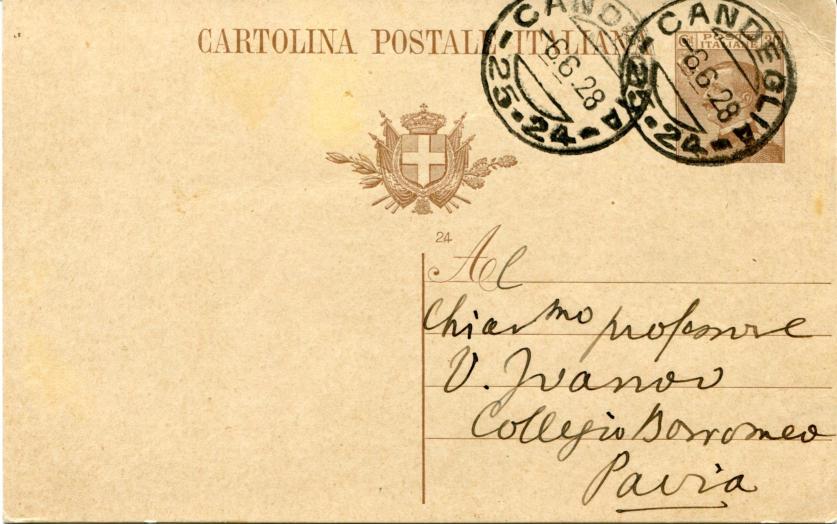 CARTOLINA POSTALE ITALIANA
CANDEGLIA
6.6.28
25-24
CANDEGLIA
6.6.28
25-24
POSTE
ITALIANE
24
Al
Chiar.mo professore
V. Ivanov
Collegio Borromeo
Pavia